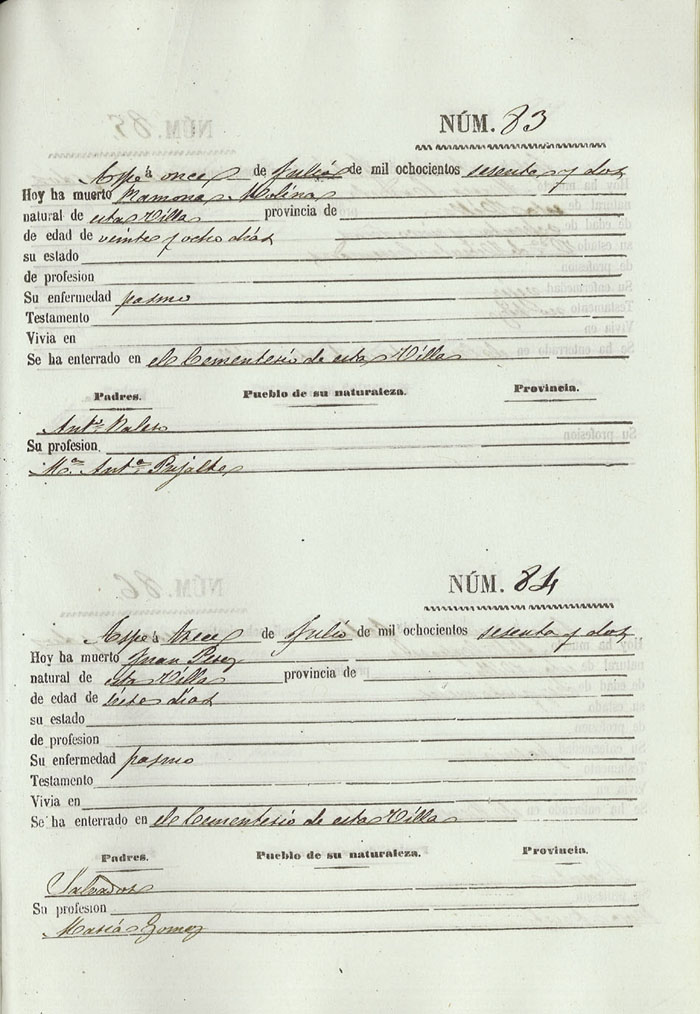 NÚM. 83
Aspe á once de Julio de mil ochocientos sesenta y dos
Hoy ha muerto Ramona Molina
natural de esta Villa provincia de
de edad de veinte y ocho dias
su estado
de profesion
Su enfermedad pasmo
Testamento
Vivia en
Se ha enterrado en el Cementerio de esta Villa
Padres. Pueblo de su naturaleza. Provincia.
Antº
Su profesion
Mª Antª Pujalte
NÚM. 84
Aspe á trece de Julio de mil ochocientos sesenta y dos
Hoy ha muerto Juan Perez
natural de esta Villa provincia de
de edad de siete dias
su estado
de profesion
Su enfermedad pasmo
Testamento
Vivia en
Se ha enterrado en el Cementerio de esta Villa
Padres. Pueblo de su naturaleza. Provincia.
Salvador
Su profesion
Maria Gomez